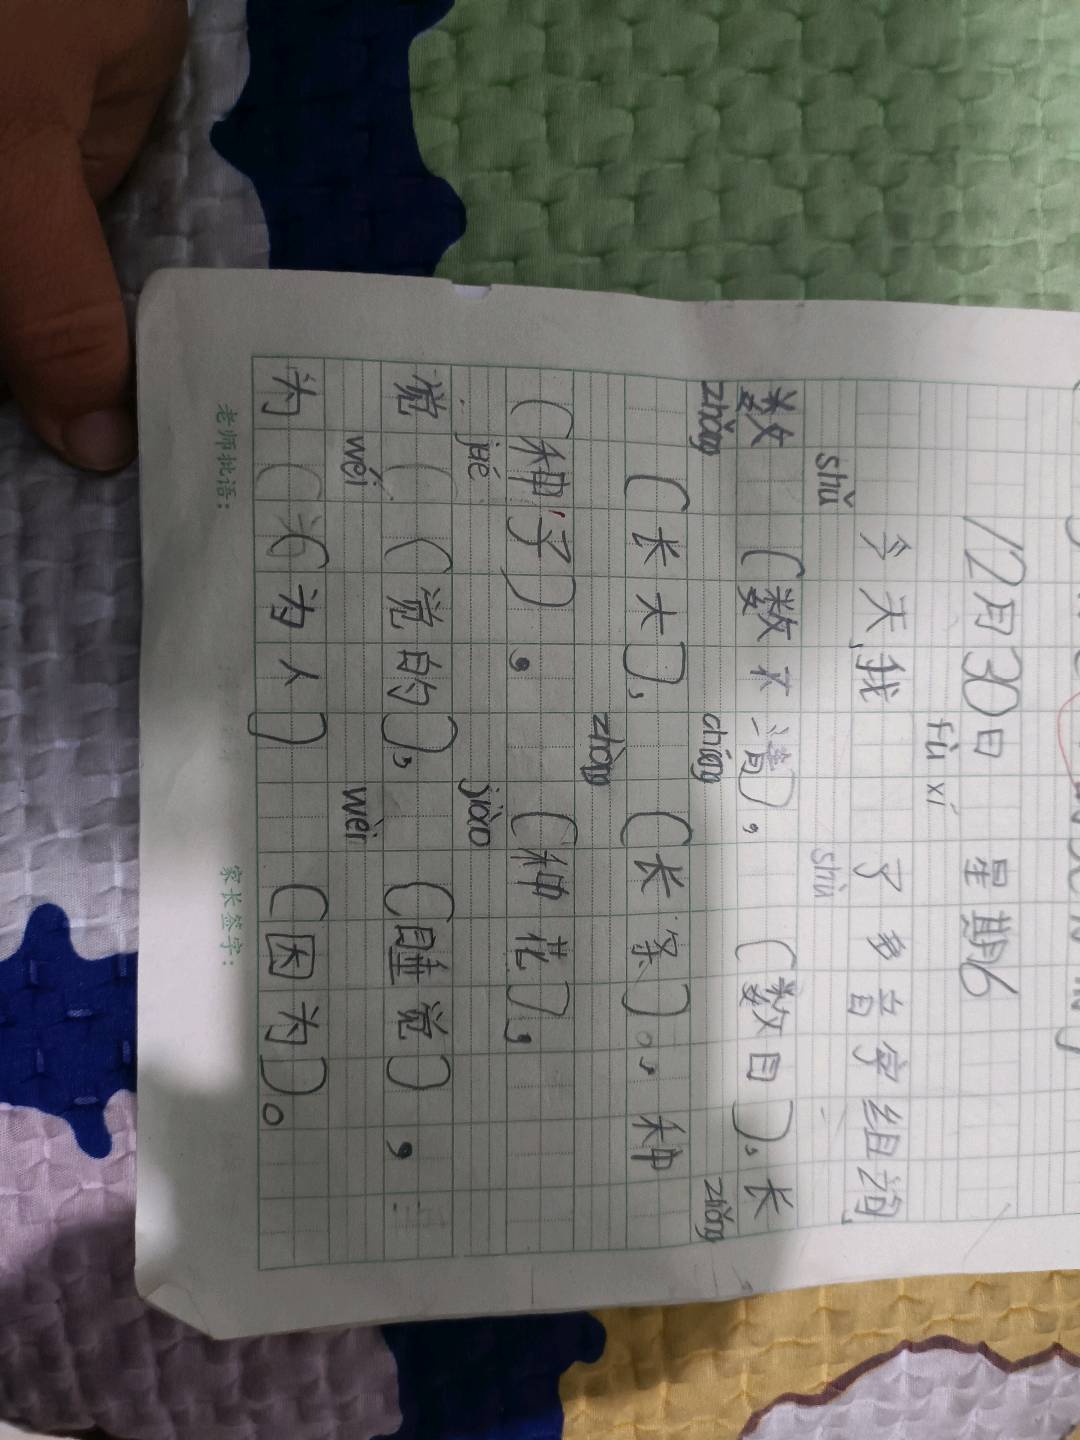 12月30日 星期6
fù xí
今天,我 了多音字组词,
shǔ shù
数 (数不清), (数日)、长
zhǎng cháng zhǒng
(长大)、 (长条)。、种
zhòng
(种子), (种花),
jué jiào
觉( (觉的)、 (睡觉),
wéi wèi
为 (为人) (因为)。
老师批语: 家长签字: